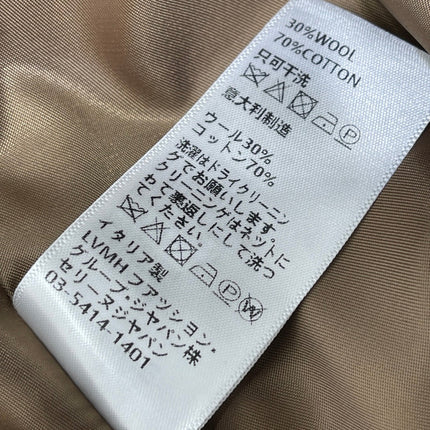 30%WOOL
70%COTTON
只可干洗
意大利制造
ウール30%
コットン70%
洗濯はドライクリーニン
グでお願いします
クリーニングはネットに
わて裏返しにして洗っ
てください。
イタリア製
LVMHファッション・
グループ・ジャパン株
セリーヌジャパン
03-5414-1401